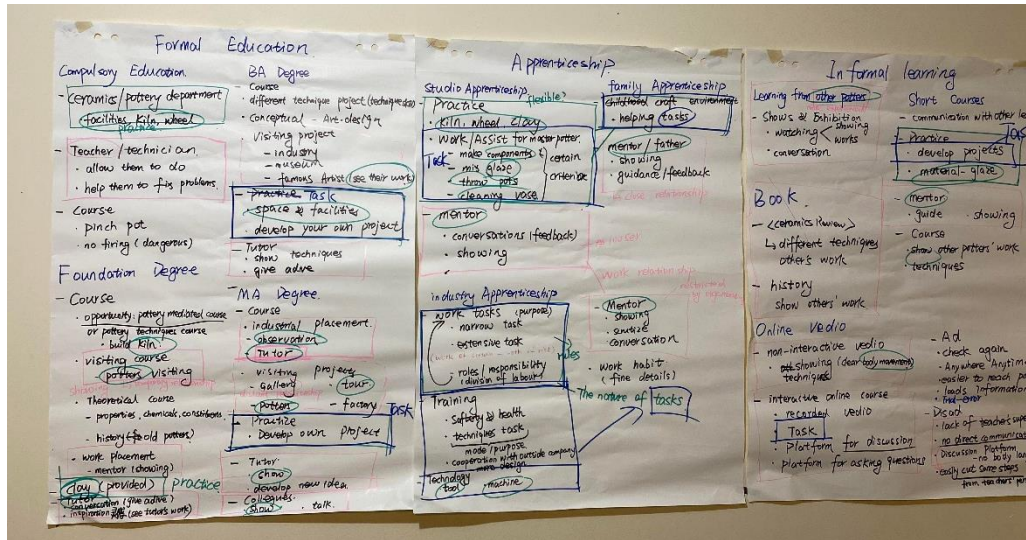 Formal Education
Compulsory Education.
- Ceramics/pottery department
facilities kiln, wheel
practice
- Teacher/technician.
· allow them to do
· help them to fix problems.
- Course
· pinch pot
· no firing (dangerous)
Foundation Degree
- Course
· opportunity: pottery mediated course
or pottery techniques course
· build kiln.
· visiting course
· potters visiting
showing
· Theoretical course
- properties, chemicals, constituents
- history (old potters)
· work placement
- mentor (showing)
- clay (provided)
practice
- Tutor
· conversation (give adive)
· inspiration (see tutor's work)
BA Degree
- Course
· different technique project
· conceptual - Art-design
· visiting project
- industry
- museum
- famous Artist (see their work)
- practice Task
· space & facilities
· develop your own project
- Tutor
· show techniques
· give adve
MA Degree.
- Course
· industrial placement.
· observation
· Tutor
· visiting projects
- Gallery · tour
- potters - factory
- Practice
Task
· Develop own project
- Tutor
· show
· develop new idea.
- Collegues
· show · talk.
Apprenticeship.
Studio Apprenticeship.
- Practice
flexible?
· kiln, wheel clay
· Work/Assist for master potter.
Task
- make components
certain
- mix glaze
criteria
- throw pots
- cleaning vase
- mentor
· conversations (feedback)
· showing
family Apprenticeship
- childhood craft environment
· helping tasks
- mentor / father
· showing
· guidance/feedback
industry Apprenticeship
- work tasks (purpose)
· narrow task
· extensive task
rules
· roles/responsibility
(division of labour)
- Training
· Saftety & health
· techniques task
mode/purpose
· cooperation with outside company
design
- Technology
tool · machine
work relationship
- Mentor
· showing
· conversation
- work habit
(fine details)
The nature of tasks
Informal learning
Learning from other potters
- Shows & Exhibition
· watching showing
works
· conversation
Book.
- <Ceramics Review>
↳ different techniques
other's work
- history
show others' work
Online Vedio
- non-interactive vedio
· showing (clear body movement)
techniques
- interactive online course
· recorded vedio
Task
· Platform for discussion
· platform for asking questions
Short Courses
- communication with other
- Practice
· develop projects
· material - glaze
- mentor
· guide · showing
- Course
· show other potters' work
· techniques
- Ad
· check again
· Anywhere Anytime
· easier to reach
· loads informatio
· find error
- Disad
· lack of teacher's
· no direct communicat
· Discussion Platform
- no body lan
· easily cut some steps
from teachers'